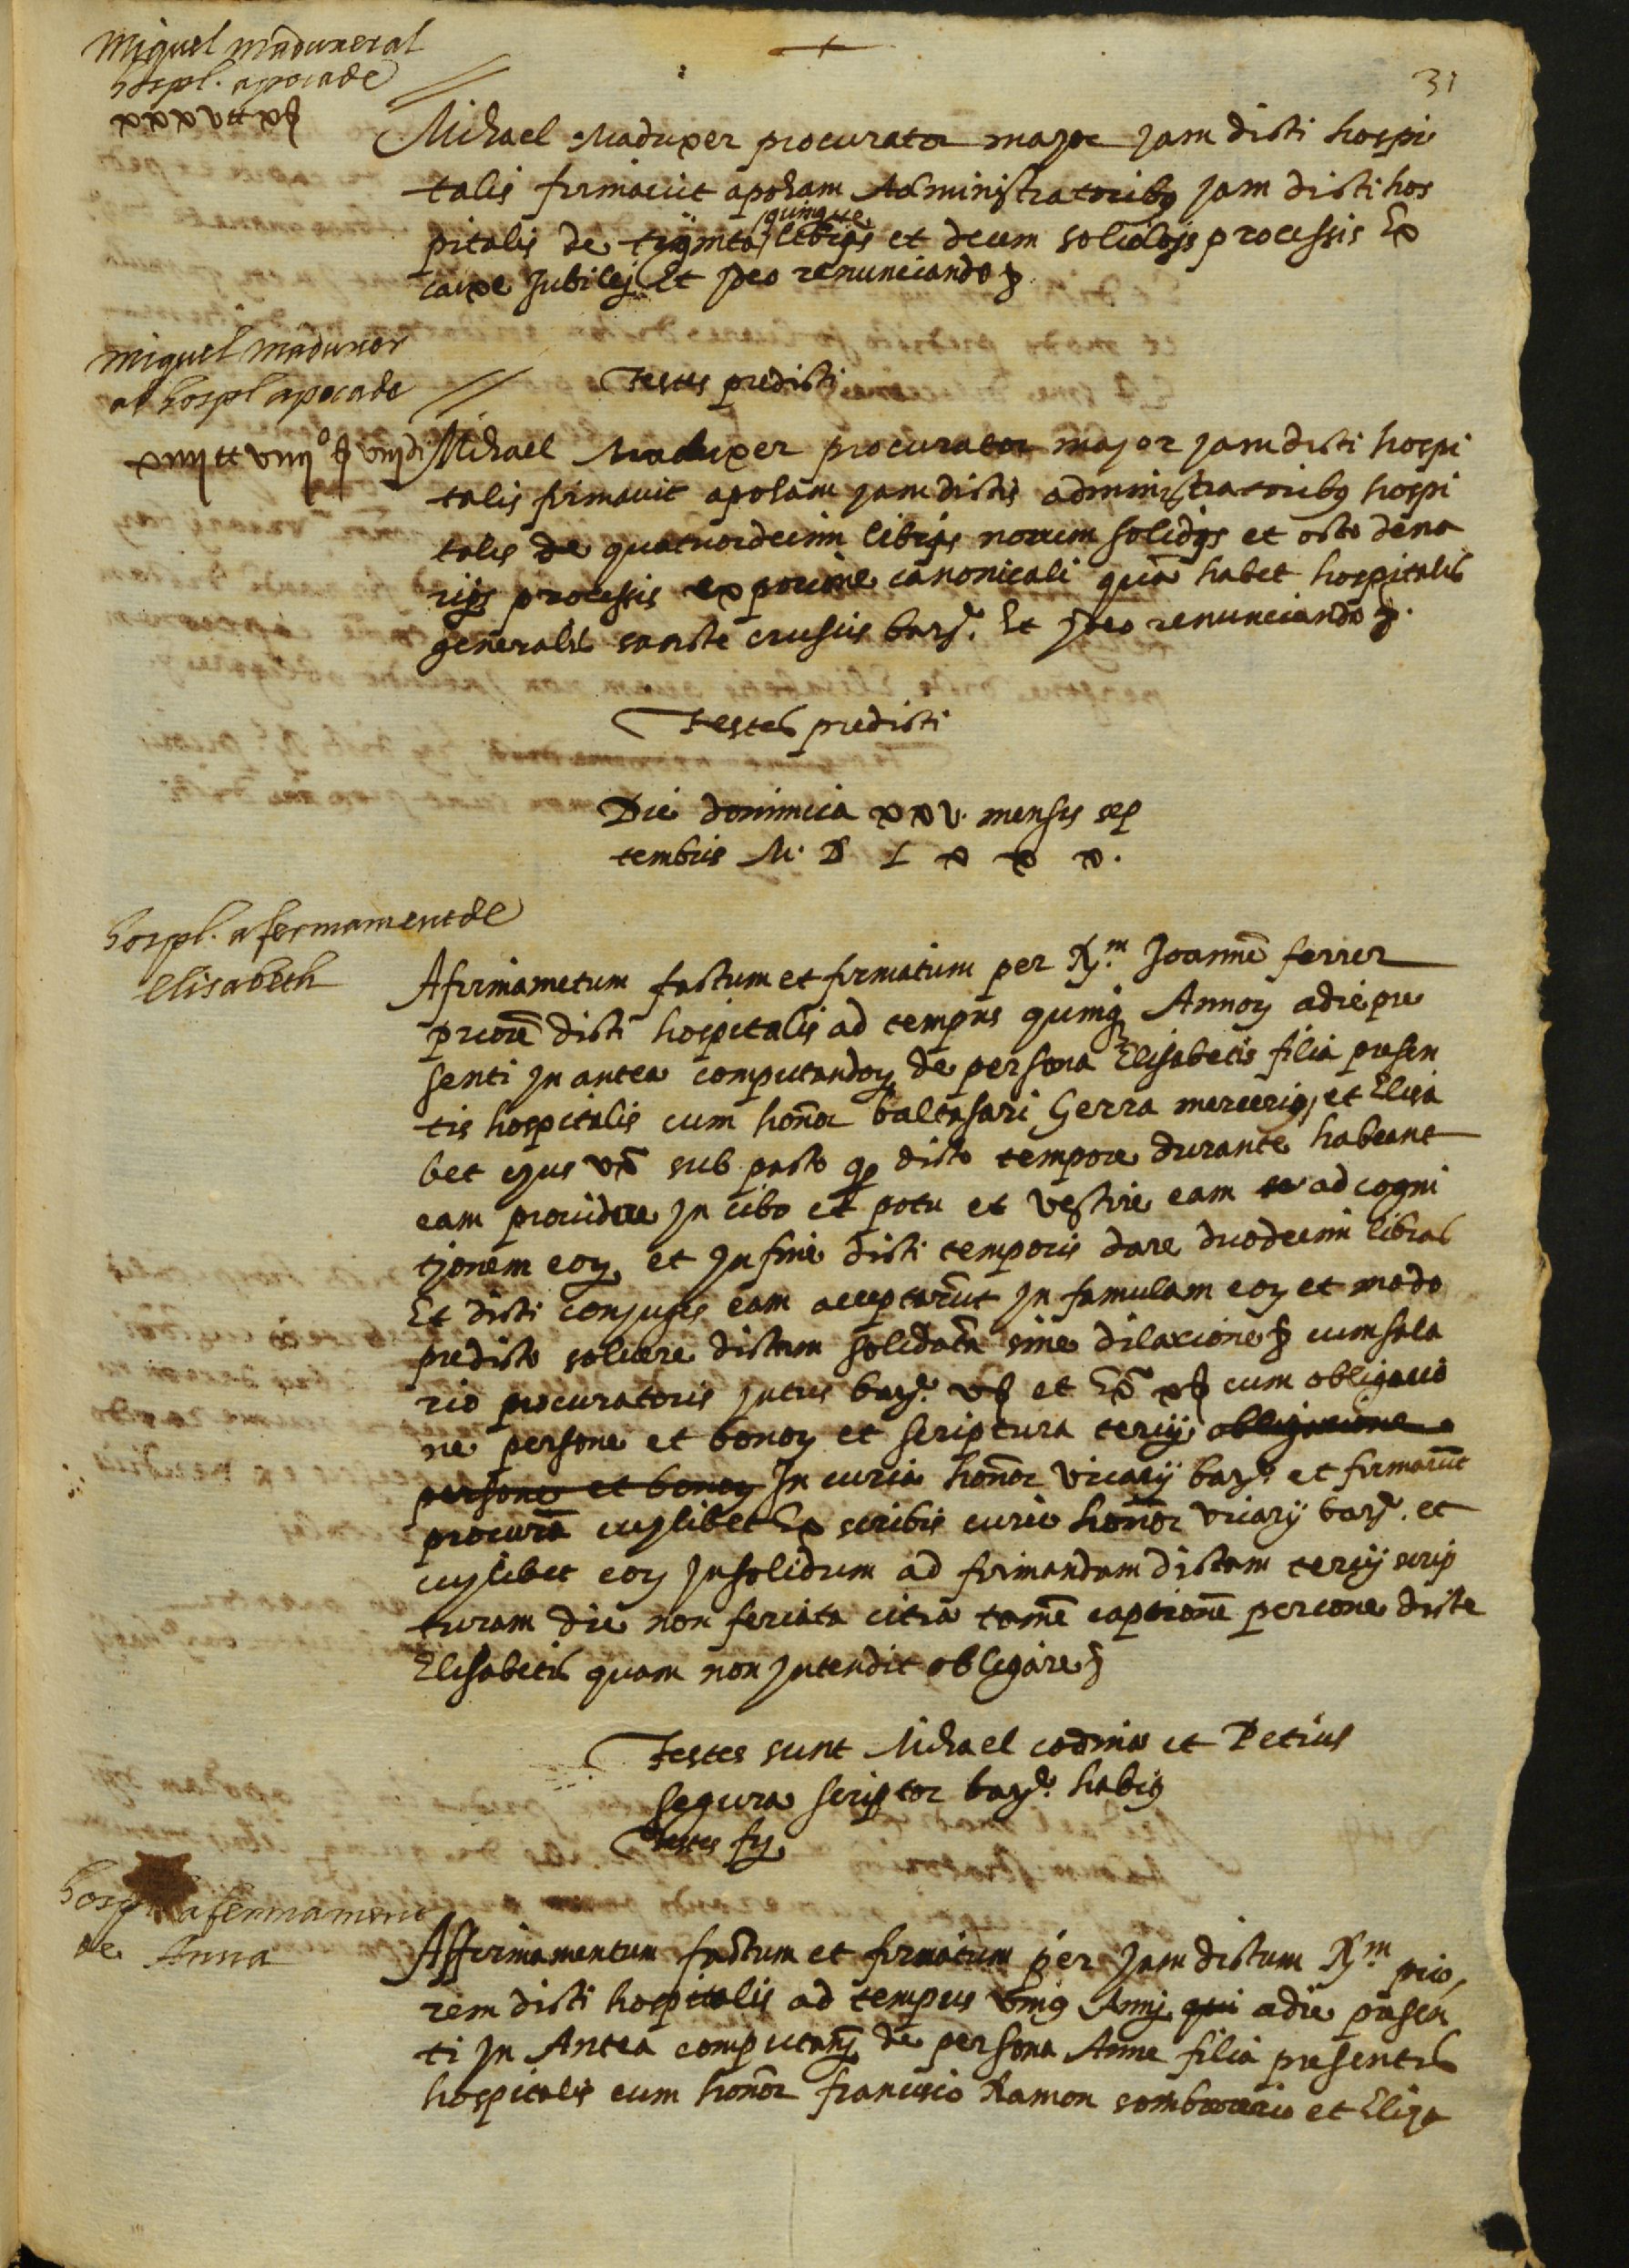 31
Miquel maduxer al
hospl. apoca de
xxxv ll x s
Michael Maduxer procurator major jam dicti hospi
talis firmavit apocham Administratoribus jam dicti hos
pitalis de triginta quinque libris et decem solidos processis Ex
caixe Jubilej Et jdeo renunciando &
Testes predicti
miquel maduxer
al hospl apoca de
xiiij ll viiij s viij d
Michael Maduxer procurator major jam dicti hospi
talis firmavit apocham jam dictis administratoribus hospi
talis de quatuordecim libris novem solidis et octo dena
rijs processis ex porcione canonicali quã habet hospitalis
generalis sancte crucis barne. Et jdeo renunciando &.
Testes predicti
Die dominica xxv. mensis sep
tembris M. D L x x x.
hospl. afermament de
Elisabeth
Afirmametum factum et firmatum per Rm. Joannẽ ferrer
priorẽ dicti hospitalis ad tempus quinq Annoꝝ adie pre
senti jn antea computandoꝝ de persona Elisabetis filia presen
tis hospitalis cum honor baltasari Gerra mercerio et Elisa
bet ejus vx̃ sub pacto q dicto tempore durante habeant
eam providere jn cibo et potu et vestire eam ad cogni
tjonem eoꝝ et jn fine dicti temporis dare duodecim libras
Et dicti conjuges eam acceptarũt jn famulam eoꝝ et modo
predicto solvere dictam solidatã sine dilacione & cum sala
rio procuratoris jntus barne. v s et Ex̃ x s cum obligacio
ne persone et bonoꝝ et scriptura tercij obligacione
persone et bonoꝝ Jn curia honor vicarij barne et firmarũt
procurã cujlibet Ex scribis curie honor vicarij barne. et
cujlibet eoꝝ jnsolidum ad firmandam dictam tercij scrip
turam die non feriata citra tamẽ captionẽ persone dicte
Elisabetis quam non jntendit obligare &
Testes sunt Michael codina et Petrus
Segura scriptor barne. habis
Testes
hospl afermament
de Anna
Affirmamentum factum et firmatum per jam dictum Rm prio
rem dicti hospitalis ad tempus vnius Annj qui adie presen
ti jn Antea computanj de persona Anne filia presentis
hospitalis cum honor francisco Ramon sombrerero et Eliza